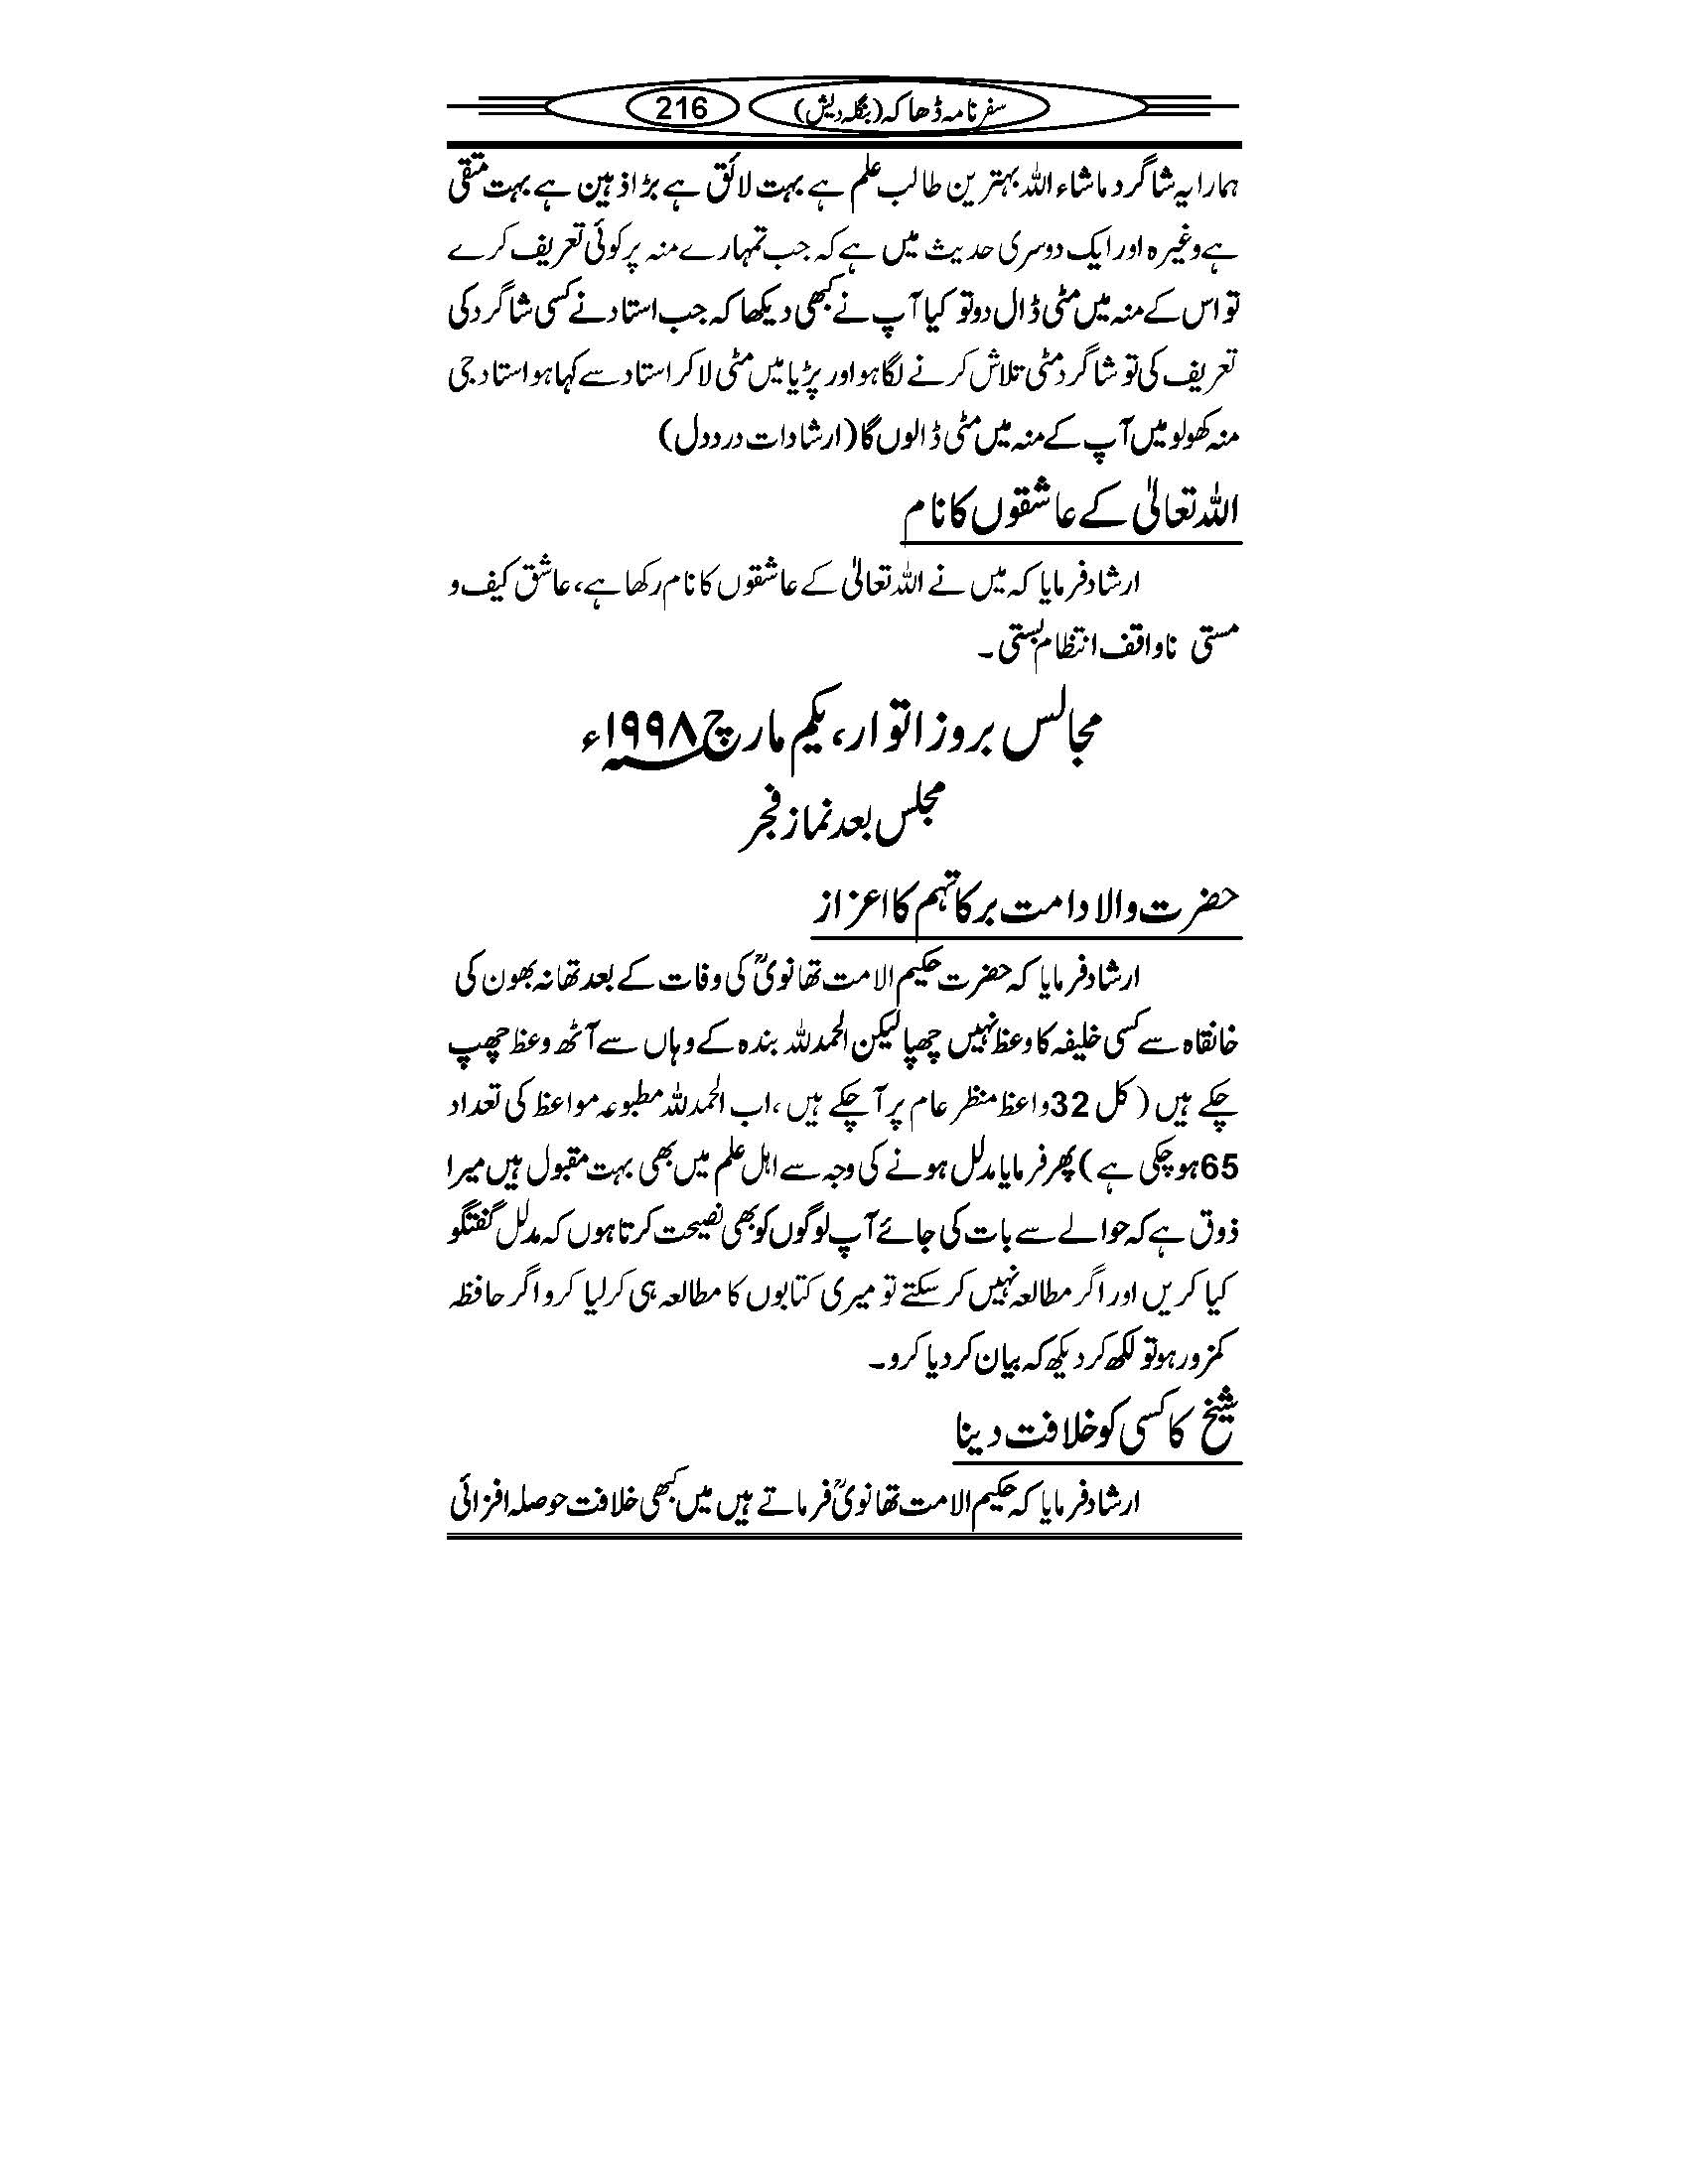 سفر نامہ ڈھاکہ (بنگلہ دیش) 216
ہمارا یہ شاگرد ماشاء اللہ بہترین طالب علم ہے بہت لائق ہے بڑا ذہین ہے بہت متقی
ہے وغیرہ اور ایک دوسری حدیث میں ہے کہ جب تمہارے منہ پر کوئی تعریف کرے
تو اس کے منہ میں مٹی ڈال دو تو کیا آپ نے کبھی دیکھا کہ جب استاد نے کسی شاگرد کی
تعریف کی تو شاگرد مٹی تلاش کرنے لگا ہو اور پڑیا میں مٹی لا کر استاد سے کہا ہو استاد جی
منہ کھولو میں آپ کے منہ میں مٹی ڈالوں گا (ارشادات درد دل)
اللہ تعالیٰ کے عاشقوں کا نام
ارشاد فرمایا کہ میں نے اللہ تعالیٰ کے عاشقوں کا نام رکھا ہے، عاشق کیف و
مستی ناواقف انتظام بستی ۔
مجالس بروز اتوار، یکم مارچ ۱۹۹۸ء
مجلس بعد نماز فجر
حضرت والا دامت برکاتہم کا اعزاز
ارشاد فرمایا کہ حضرت حکیم الامت تھانویؒ کی وفات کے بعد تھانہ بھون کی
خانقاہ سے کسی خلیفہ کا وعظ نہیں چھپا لیکن الحمد للہ بندہ کے وہاں سے آٹھ وعظ چھپ
چکے ہیں ( کل 32 واعظ منظر عام پر آ چکے ہیں ، اب الحمد للہ مطبوعہ مواعظ کی تعداد
65 ہو چکی ہے ) پھر فرمایا مدلل ہونے کی وجہ سے اہل علم میں بھی بہت مقبول ہیں میرا
ذوق ہے کہ حوالے سے بات کی جائے آپ لوگوں کو بھی نصیحت کرتا ہوں کہ مدلل گفتگو
کیا کریں اور اگر مطالعہ نہیں کر سکتے تو میری کتابوں کا مطالعہ ہی کر لیا کرو اگر حافظہ
کمزور ہو تو لکھ کر دیکھ کہ بیان کر دیا کرو ۔
شیخ کا کسی کو خلافت دینا
ارشاد فرمایا کہ حکیم الامت تھانویؒ فرماتے ہیں میں کبھی خلافت حوصلہ افزائی